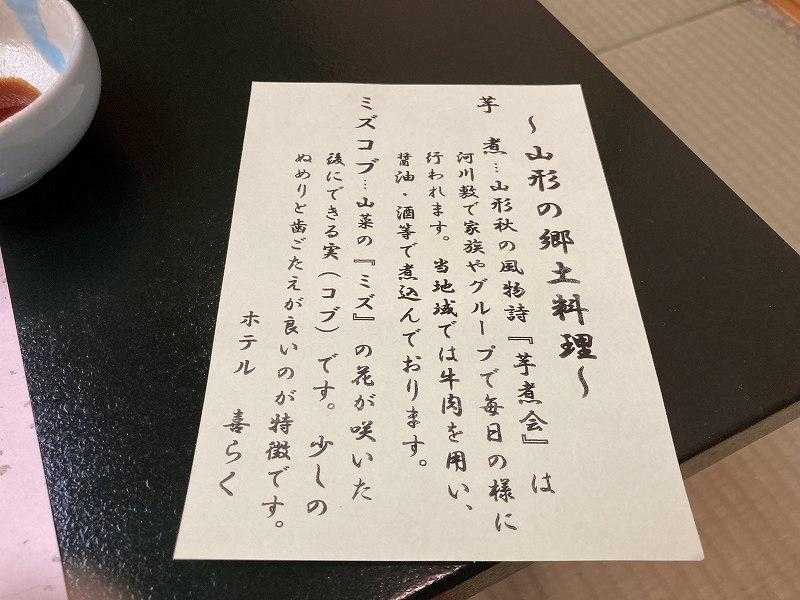 ～山形の郷土料理～
芋　煮…山形秋の風物詩『芋煮会』は
河川敷で家族やグループで毎日の様に
行われます。当地域では牛肉を用い、
醤油・酒等で煮込んでおります。
ミズコブ…山菜の『ミズ』の花が咲いた
後にできる実（コブ）です。少しの
ぬめりと歯ごたえが良いのが特徴です。
ホテル　喜らく